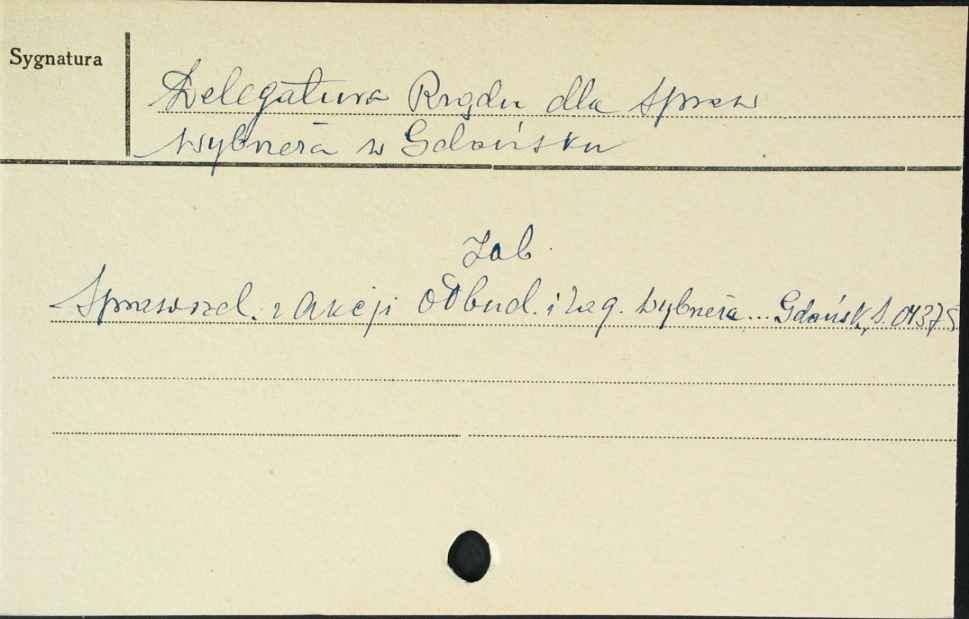 Sygnatura
Delegatura Rządu dla spraw
wybrzeża w Gdańsku
Zob.
Sprawozd. z akcji odbud. i zag. wybrzeża... Gdańsk, S. 04375